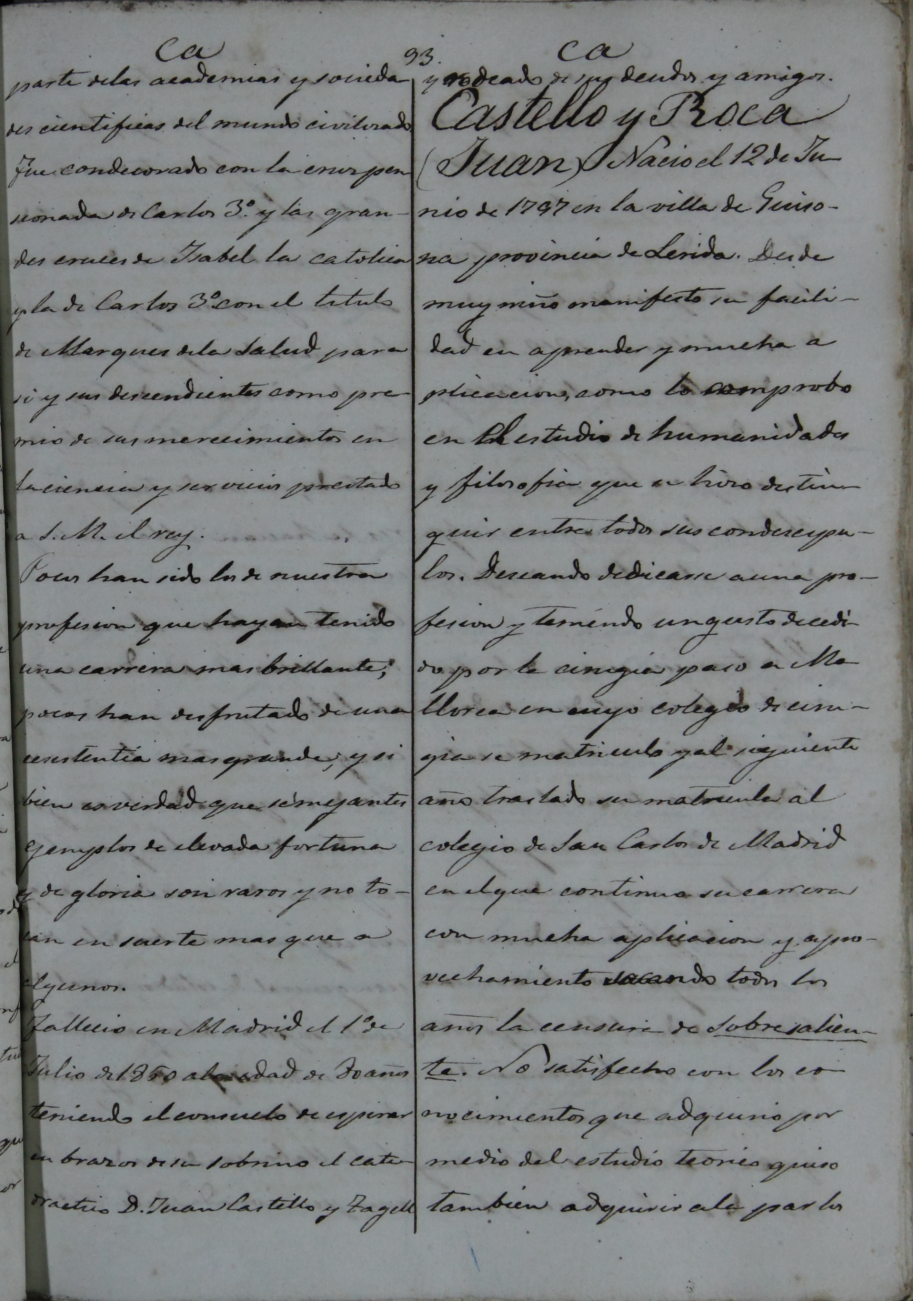 Ca
93.
Ca
parte delas academias y socieda
des cientificas del mundo civilizado
Fue condecorado con la cruz pen
sionada de Carlos 3.º y las gran-
des cruces de Isabel la catolica
y la de Carlos 3.º con el titulo
de Marques dela Salud para
si y sus descendientes como pre
mio de sus merecimientos en
la ciencia y servicios prestado
a S. M. el rey.
Pocos han sido los de nuestra
profesion que hayan tenido
una carrera mas brillante;
pocos han desfrutado de una
mas grande, y si
bien es verdad que semejantes
egemplos de elevada fortuna
y de gloria son raros y no to-
can en suerte mas que a
algunos.
Fallecio en Madrid el 1º de
Julio de 1850 a la edad de 80 años
teniendo el consuelo de espirar
en brazos de su sobrino el cate
dratico D. Juan Castello y Tagell
y rodeado de sus deudos y amigos.
Castello y Roca
(Juan) Nacio el 12 de Ju
nio de 1797 en la villa de Guiso-
na provincia de Lerida. Desde
muy niño manifesto su facili-
dad en aprender y mucha a
plicacion, como lo comprobo
en el estudio de humanidades
y filosofia que le hizo distin
guir entre todos sus condiscipu-
los. Deseando dedicarse a una pro-
fesion y teniendo un gusto decedi
do por la cirugia paso a Ma
llorca en cuyo colegio de ciru-
gia se matriculo y al siguiente
año traslado su matricula al
colegio de San Carlos de Madrid
en el que continuo su carrera
con mucha aplicacion y apro-
vechamiento sacando todos los
años la censura de Sobresalien-
te. No satisfecho con los co
nocimientos que adquirio por
medio del estudio teorico quiso
tambien adquirir ala par los